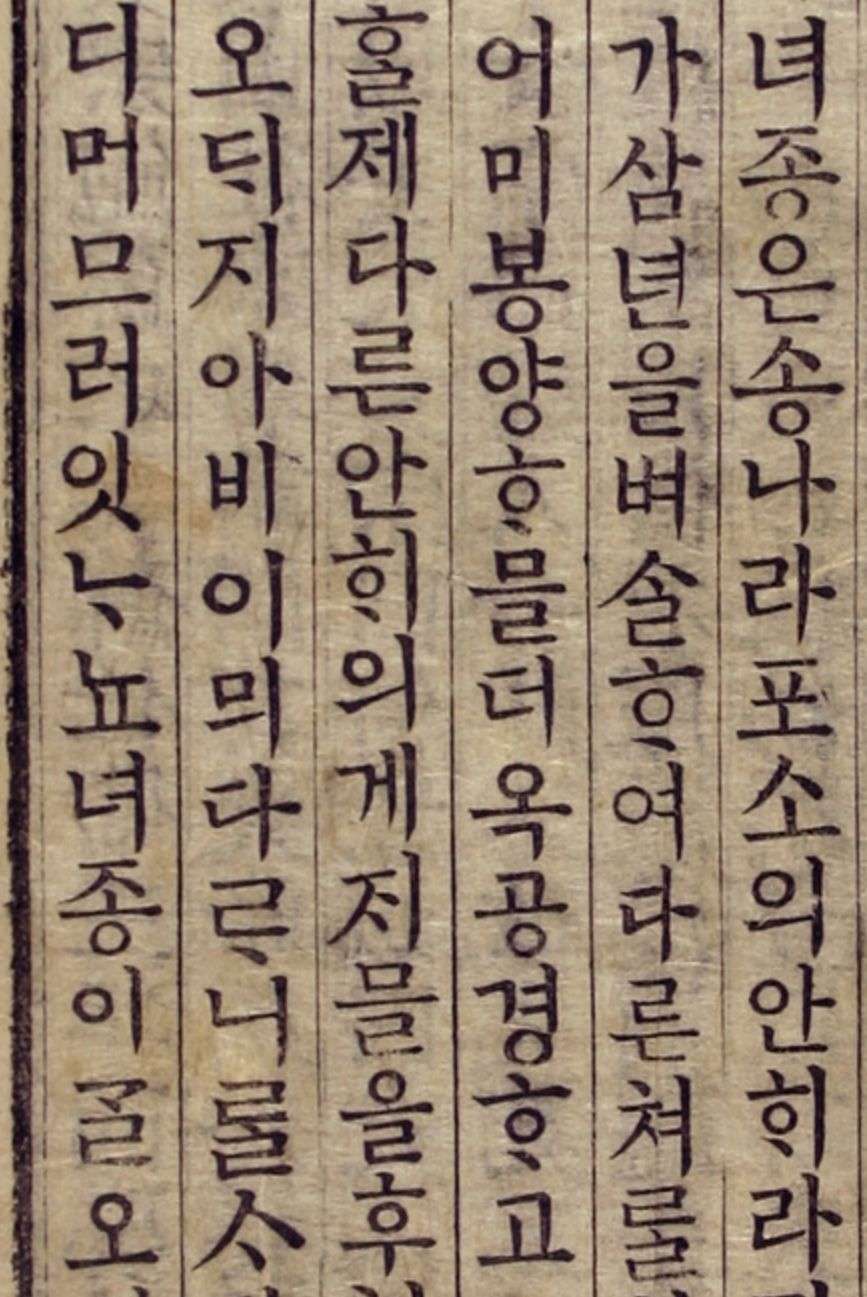 녀종은송나라포소의안ᄒᆡ라
가삼년을벼솔ᄒᆞ여다른쳐롤
어미봉양ᄒᆞ믈더옥공경ᄒᆞ고
홀제다른안ᄒᆡ의게ᄌᆡ믈을후
오ᄃᆡ지아비이믜다ᄅᆞ니롤ᄉᆞ
디머므러잇ᄂᆞ뇨녀종이ᄀᆞᆯ오